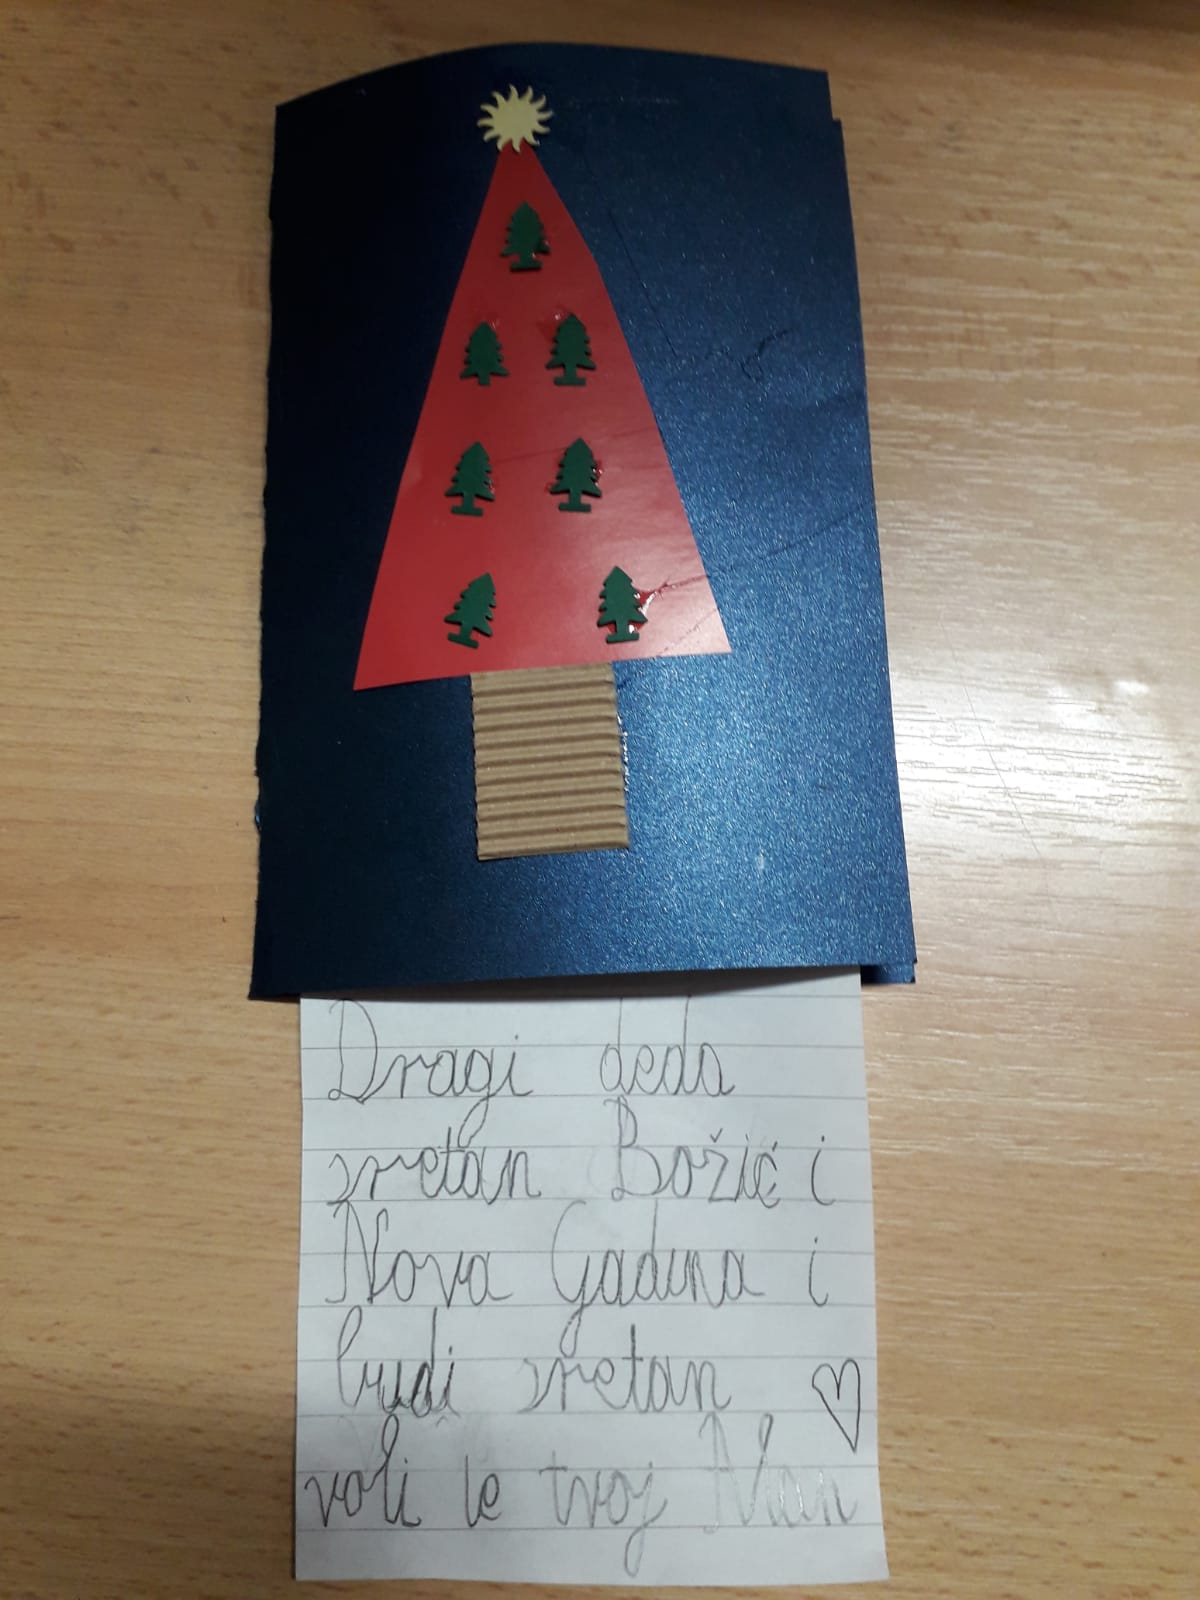 Dragi deda
sretan Božić i
Nova Gadina i
budi sretan
voli te tvoj